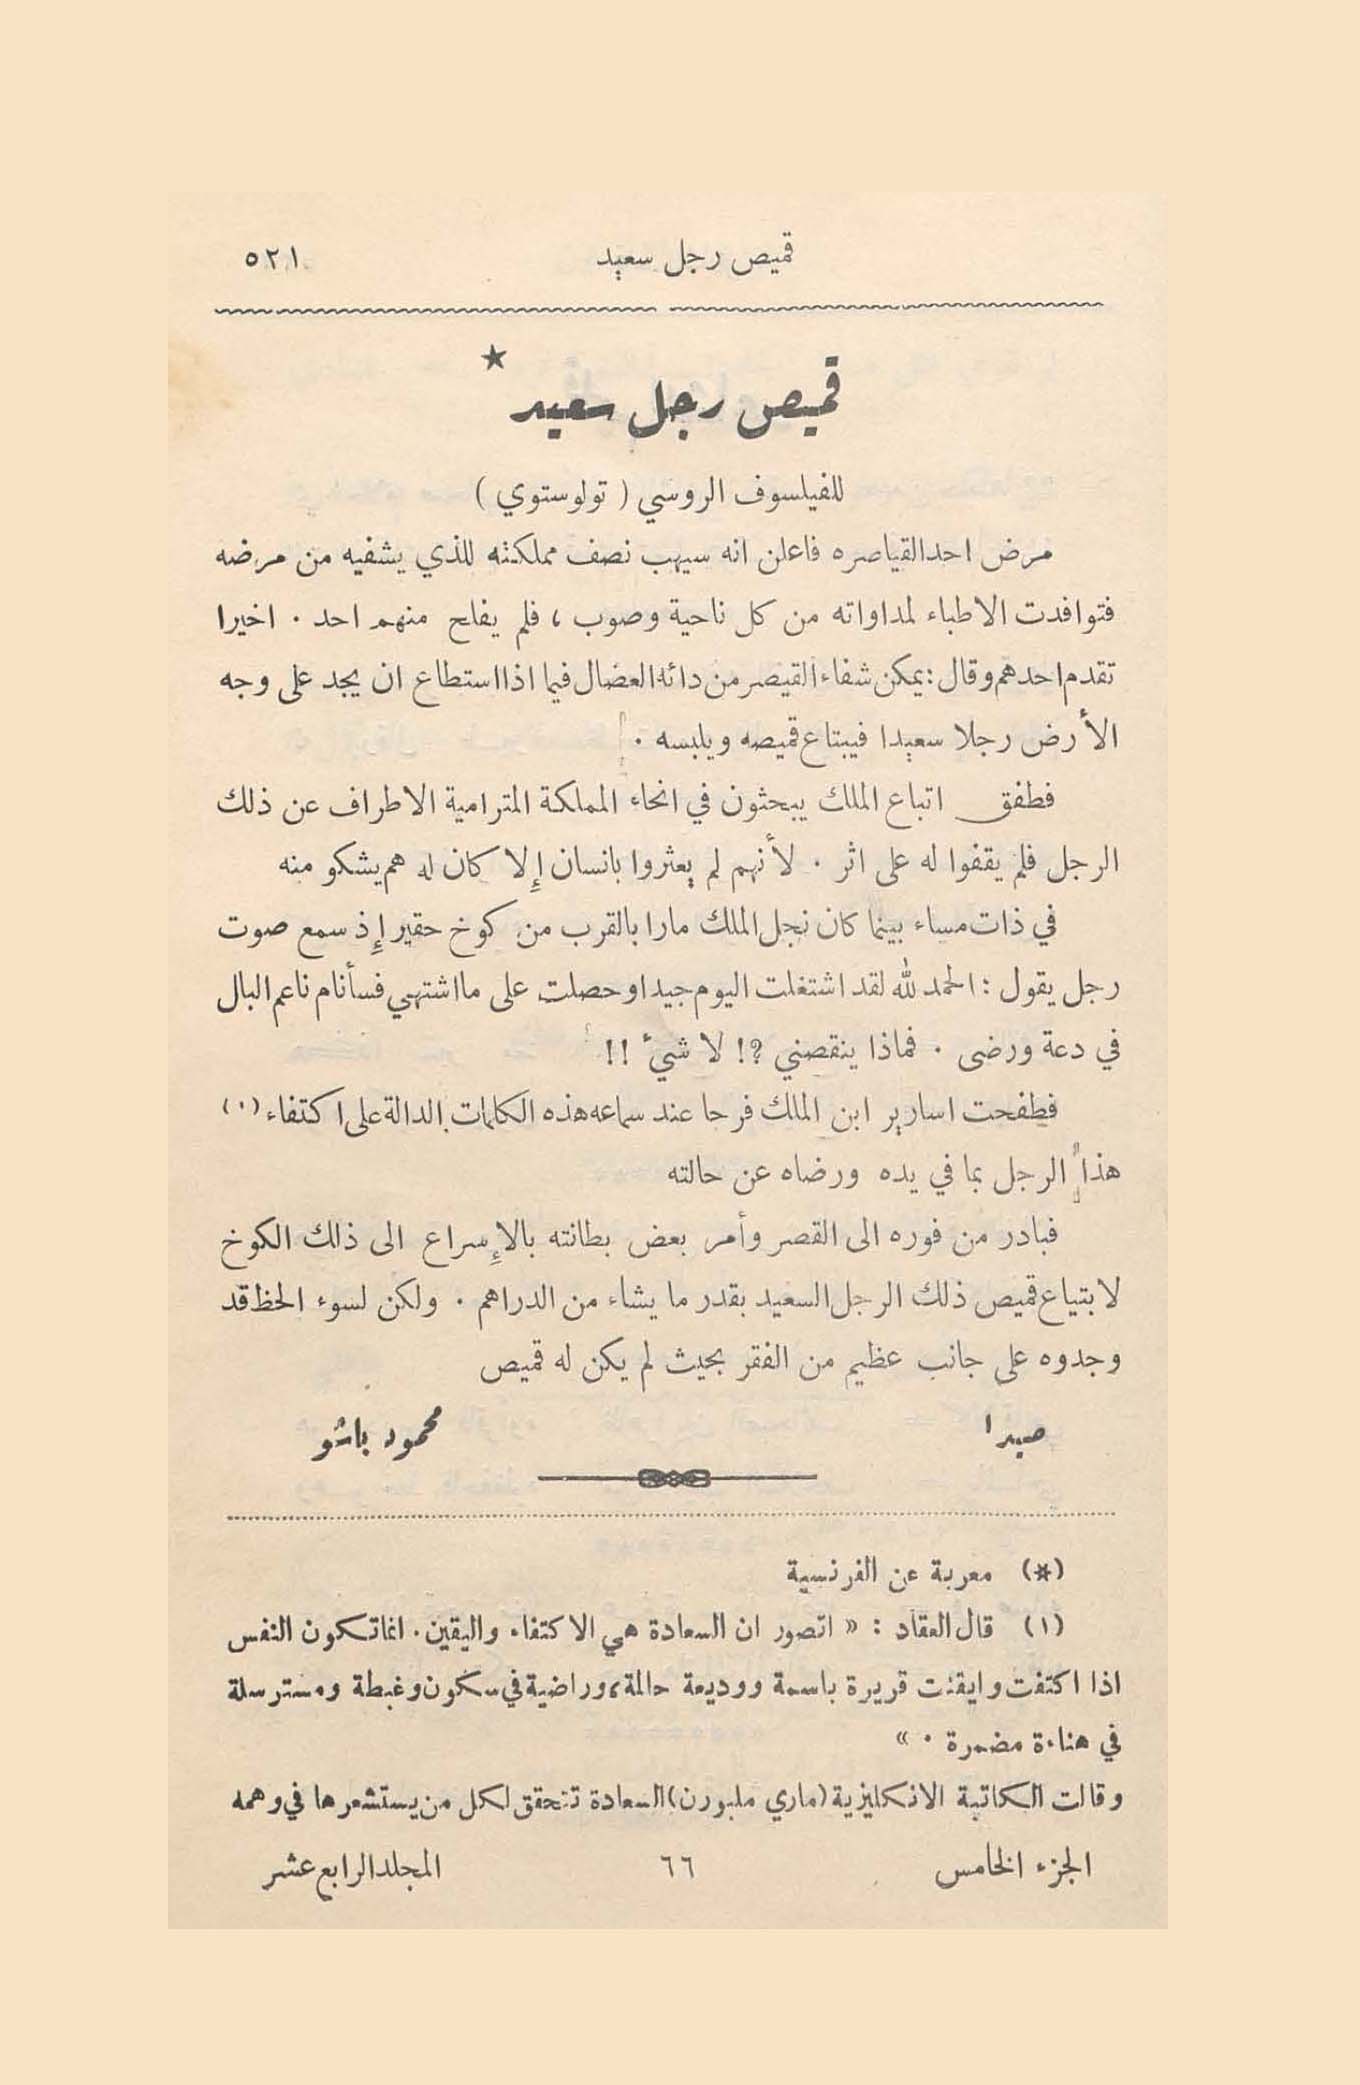 قميص رجل سعيد ٥٢١
قميص رجل سعيد *
للفيلسوف الروسي ( تولوستوي )
مرض احد القياصره فاعلن انه سيهب نصف مملكته للذي يشفيه من مرضه
فتوافدت الاطباء لمداواته من كل ناحية وصوب ، فلم يفلح منهم احد . اخيرا
تقدم احدهم وقال : يمكن شفاء القيصر من دائه العضال فيما اذا استطاع ان يجد على وجه
الأرض رجلا سعيدا فيبتاع قميصه ويلبسه .
فطفق اتباع الملك يبحثون في انحاء المملكة المترامية الاطراف عن ذلك
الرجل فلم يقفوا له على اثر . لأنهم لم يعثروا بانسان إلا كان له هم يشكو منه
في ذات مساء بينما كان نجل الملك مارا بالقرب من كوخ حقير إذ سمع صوت
رجل يقول : الحمد لله لقد اشتغلت اليوم جيدا وحصلت على ما اشتهي فسأنام ناعم البال
في دعة ورضى . فماذا ينقصني ?! لا شيء !!
فطفحت اسارير ابن الملك فرحا عند سماعه هذه الكلمات الدالة على اكتفاء (١)
هذا الرجل بما في يده ورضاه عن حالته
فبادر من فوره الى القصر وأمر بعض بطانته بالإسراع الى ذلك الكوخ
لابتياع قميص ذلك الرجل السعيد بقدر ما يشاء من الدراهم . ولكن لسوء الحظ قد
وجدوه على جانب عظيم من الفقر بحيث لم يكن له قميص
صيدا محمود باشو
(*) معربة عن الفرنسية
(١) قال العقاد : « اتصور ان السعادة هي الاكتفاء واليقين . انما تكون النفس
اذا اكتفت وايقنت قريرة باسمة ووديعة حالمة ، وراضية في سكون وغبطة ومسترسلة
في هناءة مضمرة . »
وقالت الكاتبة الانكليزية (ماري ملبورن) السعادة تتحقق لكل من يستشعرها في وهمه
الجزء الخامس ٦٦ المجلد الرابع عشر